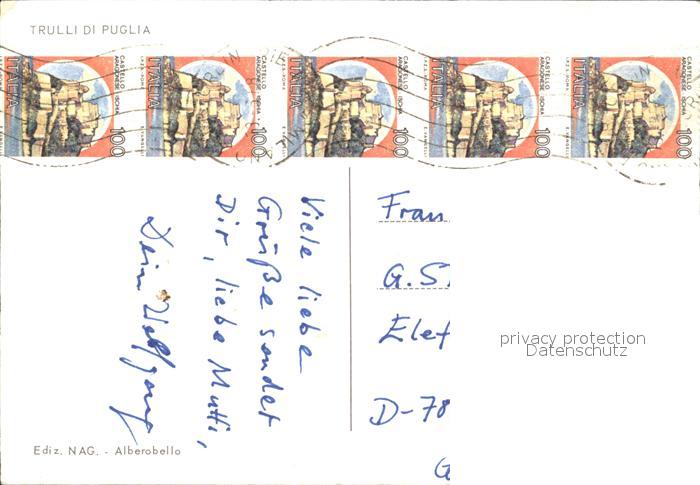 TRULLI DI PUGLIA
CASTELLO ARAGONESE · ISCHIA
ITALIA
100
CASTELLO ARAGONESE · ISCHIA
ITALIA
100
CASTELLO ARAGONESE · ISCHIA
ITALIA
100
CASTELLO ARAGONESE · ISCHIA
ITALIA
100
CASTELLO ARAGONESE · ISCHIA
ITALIA
100
Viele liebe
Grüße sendet
Dir, liebe Mutti,
Dein Wolfgang
Frau
G.S
Elef
D-78
G
privacy protection
Datenschutz
Ediz. NAG. - Alberobello